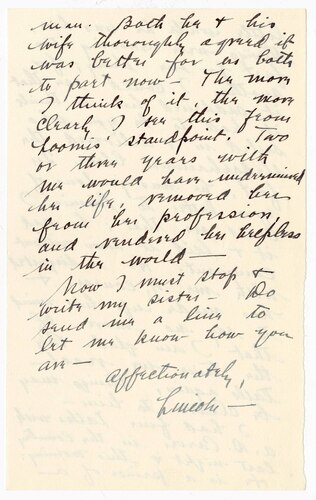 man. Both he & his
wife thoroughly agreed it
was better for us both
to part now— The more
I think of it, the more
clearly I see this from
Loomis' standpoint. Two
or three years with
me would have undermined
her life, removed her
from her profession,
and rendered her helpless
in the world—
Now I must stop &
write my sister— Do
send me a line to
let me know how you
are—
Affectionately,
Lincoln—